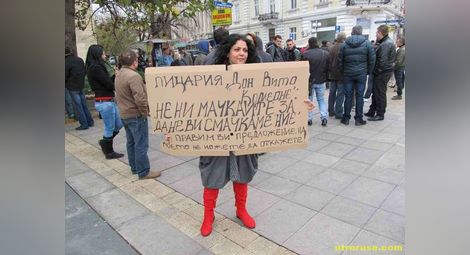 ПИЦАРИЯ „ДОН ВИТО
КОРЛЕОНЕ“
НЕ НИ МАЧКАЙТЕ ЗА
ДА НЕ ВИ СМАЧКАМЕ НИЕ
ПРАВИМ ВИ ПРЕДЛОЖЕНИЕ, НА
КОЕТО НЕ МОЖЕТЕ ДА ОТКАЖЕТЕ
utroruse.com